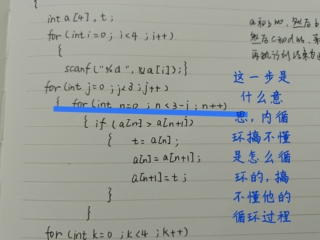 {
int a[4], t;
for(int i=0; i<4; i++)
{
scanf("%d", &a[i]);}
for(int j=0; j<3; j++)
{ for(int n=0; n<3-j; n++)
{ if (a[n]>a[n+1])
{ t=a[n];
a[n]=a[n+1];
a[n+1]=t;
}
}
}
for(int k=0; k<4; k++)
这一步是
什么意
思,内循
环搞不懂
是怎么循
环的,搞
不懂他的
循环过程